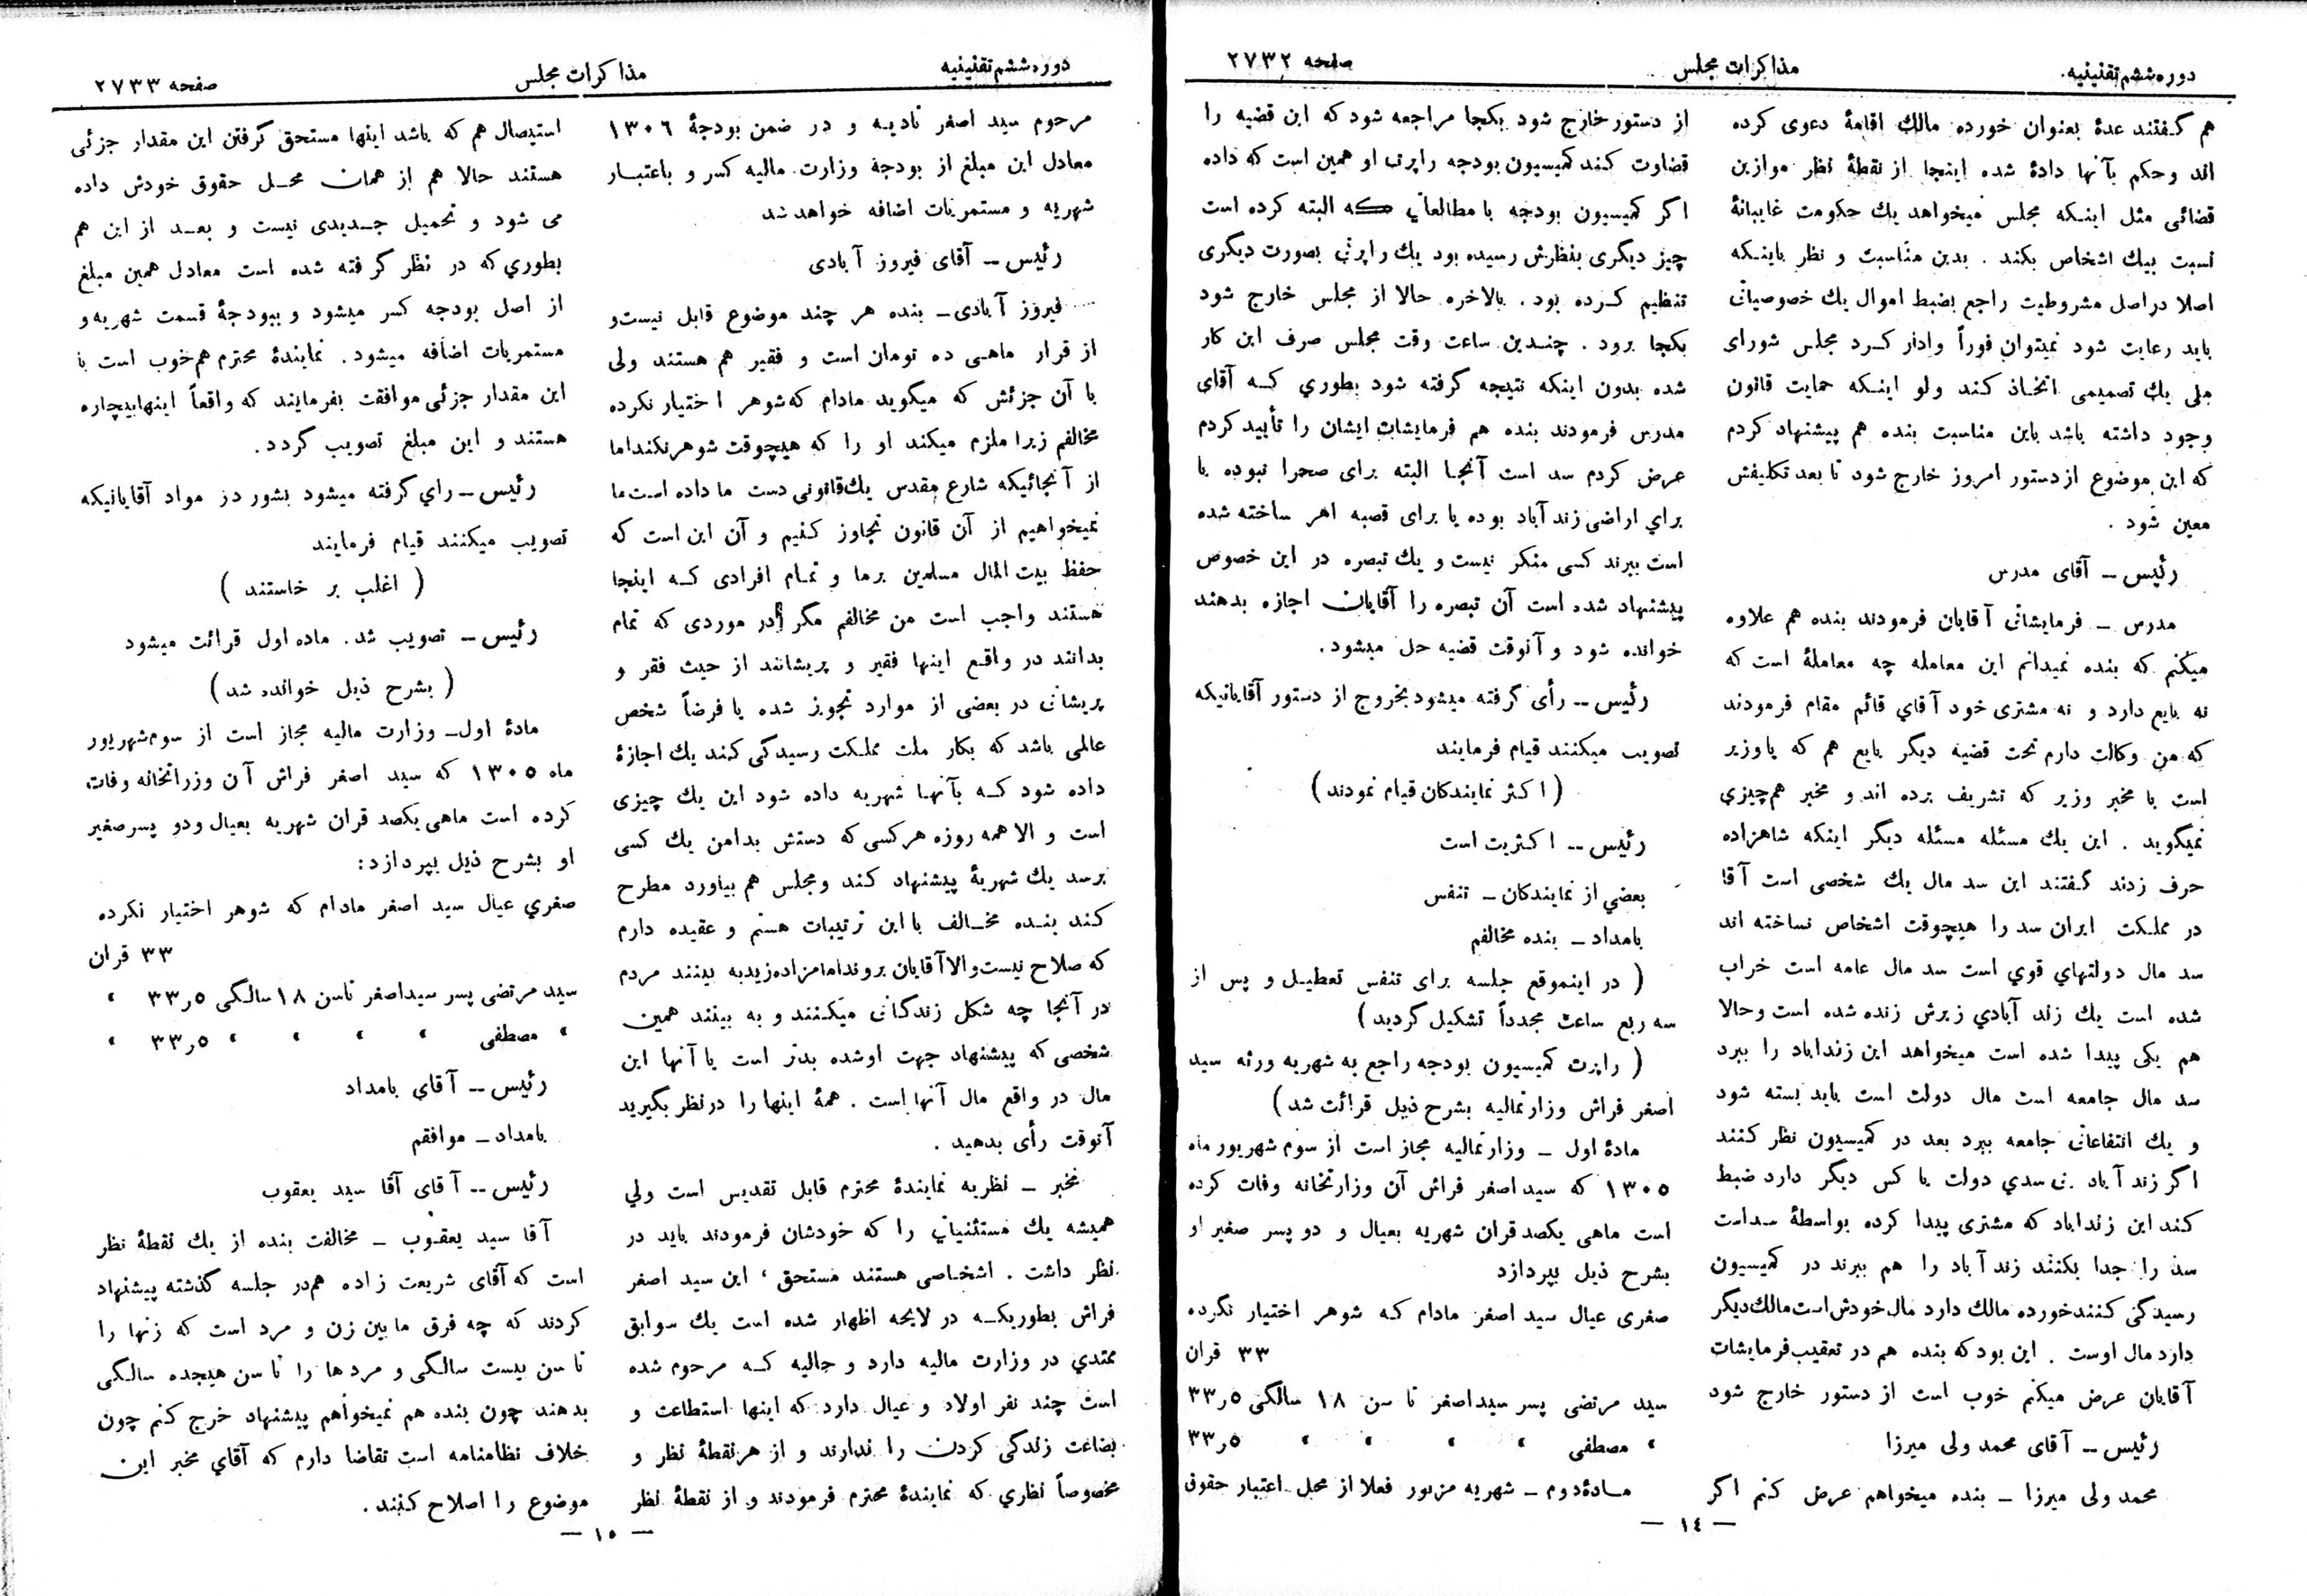 دوره ششم تقنینیه
مذاکرات مجلس
صفحه ۲۷۳۲
هم گفتند عدهٔ بعنوان خورده مالك اقامهٔ دعوی کرده
اند وحکم بآنها دادهٔ شده اینجا از نقطهٔ نظر موازین
قضائی مثل اینکه مجلس میخواهد یك حکومت غایبانهٔ
نسبت بیك اشخاص بکند . بدین مناسبت و نظر باینکه
اصلا دراصل مشروطیت راجع بضبط اموال یك خصوصیاتی
باید رعایت شود نمیتوان فوراً وادار کرد مجلس شورای
ملی یك تصمیمی اتخاذ کند ولو اینکه حمایت قانون
وجود داشته باشد باین مناسبت بنده هم پیشنهاد کردم
که این موضوع ازدستور امروز خارج شود تا بعد تکلیفش
معین شود .
رئیس ــ آقای مدرس
مدرس ــ فرمایشاتی آقایان فرمودند بنده هم علاوه
میکنم که بنده نمیدانم این معامله چه معاملهٔ است که
نه بایع دارد و نه مشتری خود آقاي قائم مقام فرمودند
که من وکالت دارم تحت قضیه دیگر بایع هم که یا وزیر
است یا مخبر وزیر که تشریف برده اند و مخبر هم چیزي
نمیگوید . این یك مسئله مسئله دیگر اینکه شاهزاده
حرف زدند گفتند این سد مال یك شخصی است آقا
در مملکت ایران سد را هیچوقت اشخاص نساخته اند
سد مال دولتهاي قوي است سد مال عامه است خراب
شده است یك زند آبادي زیرش زنده شده است وحالا
هم یکی پیدا شده است میخواهد این زنداباد را ببرد
سد مال جامعه است مال دولت است باید بسته شود
و یك انتفاعاتی جامعه ببرد بعد در کمیسیون نظر کنند
اگر زند آباد بی سدي دولت یا کس دیگر دارد ضبط
کند این زنداباد که مشتری پیدا کرده بواسطهٔ سد است
سد را جدا بکنند زند آباد را هم ببرند در کمیسیون
رسیدگی کنند خورده مالك دارد مال خودش است مالك دیگر
دارد مال اوست . این بود که بنده هم در تعقیب فرمایشات
آقایان عرض میکنم خوب است از دستور خارج شود
رئیس ــ آقای محمد ولی میرزا
محمد ولی میرزا ــ بنده میخواهم عرض کنم اگر
از دستور خارج شود بکجا مراجعه شود که این قضیه را
قضاوت کند کمیسیون بودجه راپرت او همین است که داده
اگر کمیسیون بودجه با مطالعاتي که البته کرده است
چیز دیگری بنظرش رسیده بود یك راپرتي بصورت دیگری
تنظیم کرده بود . بالاخره حالا از مجلس خارج شود
بکجا برود . چندین ساعت وقت مجلس صرف این کار
شده بدون اینکه نتیجه گرفته شود بطوري که آقای
مدرس فرمودند بنده هم فرمایشات ایشان را تأیید کردم
عرض کردم سد است آنجا البته برای صحرا نبوده یا
براي اراضی زند آباد بوده یا برای قصبه اهر ساخته شده
است ببرند کسی منکر نیست و یك تبصره در این خصوص
پیشنهاد شده است آن تبصره را آقایان اجازه بدهند
خوانده شود و آنوقت قضیه حل میشود .
رئیس ــ رأی گرفته میشود بخروج از دستور آقایانیکه
تصویب میکنند قیام فرمایند
( اکثر نمایندگان قیام نمودند )
رئیس ــ اکثریت است
بعضي از نمایندکان ــ تنفس
بامداد ــ بنده مخالفم
( در اینموقع جلسه برای تنفس تعطیل و پس از
سه ربع ساعت مجدداً تشکیل گردید )
( راپرت کمیسیون بودجه راجع به شهریه ورثه سید
اصغر فراش وزارتمالیه بشرح ذیل قرائت شد )
مادهٔ اول ــ وزارتمالیه مجاز است از سوم شهریور ماه
۱۳۰۵ که سید اصغر فراش آن وزارتخانه وفات کرده
است ماهی یکصد قران شهریه بعیال و دو پسر صغیر او
بشرح ذیل بپردازد
صغری عیال سید اصغر مادام که شوهر اختیار نکرده
۳۳ قران
سید مرتضی پسر سید اصغر تا سن ۱۸ سالگی ۳۳ر۵
« مصطفی « « « « ۳۳ر۵
مادهٔ دوم ــ شهریه مزبور فعلا از محل اعتبار حقوق
ــ ١٤ ــ
دوره ششم تقنینیه
مذاکرات مجلس
صفحه ۲۷۳۳
مرحوم سید اصغر تادیه و در ضمن بودجهٔ ۱۳۰۶
معادل این مبلغ از بودجهٔ وزارت مالیه کسر و باعتبار
شهریه و مستمریات اضافه خواهد شد
رئیس ــ آقای فیروز آبادی
فیروز آبادی ــ بنده هر چند موضوع قابل نیست و
از قرار ماهی ده تومان است و فقیر هم هستند ولی
با آن جزئش که میگوید مادام که شوهر اختیار نکرده
مخالفم زیرا ملزم میکند او را که هیچوقت شوهر نکند اما
از آنجائیکه شارع مقدس یك قانونی دست ما داده است ما
نمیخواهیم از آن قانون تجاوز کنیم و آن این است که
حفظ بیت المال مسلمین برما و تمام افرادی که اینجا
هستند واجب است من مخالفم مگر در موردی که تمام
بدانند در واقع اینها فقیر و پریشانند از حیث فقر و
پریشانی در بعضی از موارد تجویز شده یا فرضاً شخص
عالمی باشد که بکار ملت مملکت رسیدگی کند یك اجازهٔ
داده شود که بآنها شهریه داده شود این یك چیزی
است و الا همه روزه هر کسی که دستش بدامن یك کسی
برسد یك شهریهٔ پیشنهاد کند و مجلس هم بیاورد مطرح
کند بنده مخالف با این ترتیبات هستم و عقیده دارم
که صلاح نیست والا آقایان بروند امامزاده زید به بینند مردم
در آنجا چه شکل زندگانی میکنند و به بینند همین
شخصی که پیشنهاد جهت او شده بدتر است یا آنها این
مال در واقع مال آنها است . همهٔ اینها را در نظر بگیرید
آنوقت رأی بدهید .
مخبر ــ نظریه نمایندهٔ محترم قابل تقدیس است ولي
همیشه یك مستثنیاتي را که خودشان فرمودند باید در
نظر داشت . اشخاصی هستند مستحق ، این سید اصغر
فراش بطوریکه در لایحه اظهار شده است یك سوابق
ممتدي در وزارت مالیه دارد و حالیه که مرحوم شده
است چند نفر اولاد و عیال دارد که اینها استطاعت و
بضاعت زندگی کردن را ندارند و از هر نقطهٔ نظر و
مخصوصاً نظري که نمایندهٔ محترم فرمودند و از نقطهٔ نظر
استیصال هم که باشد اینها مستحق گرفتن این مقدار جزئی
هستند حالا هم از همان محل حقوق خودش داده
می شود و تحمیل جدیدی نیست و بعد از این هم
بطوري که در نظر گرفته شده است معادل همین مبلغ
از اصل بودجه کسر میشود و ببودجهٔ قسمت شهریه و
مستمریات اضافه میشود . نمایندهٔ محترم هم خوب است با
این مقدار جزئی موافقت بفرمایند که واقعاً اینها بیچاره
هستند و این مبلغ تصویب گردد .
رئیس ــ راي گرفته میشود بشور در مواد آقایانیکه
تصویب میکنند قیام فرمایند
( اغلب بر خاستند )
رئیس ــ تصویب شد . ماده اول قرائت میشود
( بشرح ذیل خوانده شد )
مادهٔ اول ــ وزارت مالیه مجاز است از سوم شهریور
ماه ۱۳۰۵ که سید اصغر فراش آن وزراتخانه وفات
کرده است ماهی یکصد قران شهریه بعیال و دو پسر صغیر
او بشرح ذیل بپردازد :
صغري عیال سید اصغر مادام که شوهر اختیار نکرده
۳۳ قران
سید مرتضی پسر سید اصغر تاسن ۱۸ سالگی ۳۳ر۵ «
« مصطفی « « « « ۳۳ر۵ «
رئیس ــ آقاي بامداد
بامداد ــ موافقم
رئیس ــ آقاي آقا سید یعقوب
آقا سید یعقوب ــ مخالفت بنده از یك نقطهٔ نظر
است که آقای شریعت زاده هم در جلسه گذشته پیشنهاد
کردند که چه فرق ما بین زن و مرد است که زنها را
تا سن بیست سالگی و مرد ها را تا سن هیجده سالگی
بدهند چون بنده هم نمیخواهم پیشنهاد خرج کنم چون
خلاف نظامنامه است تقاضا دارم که آقاي مخبر این
موضوع را اصلاح کنند .
ــ ١٥ ــ